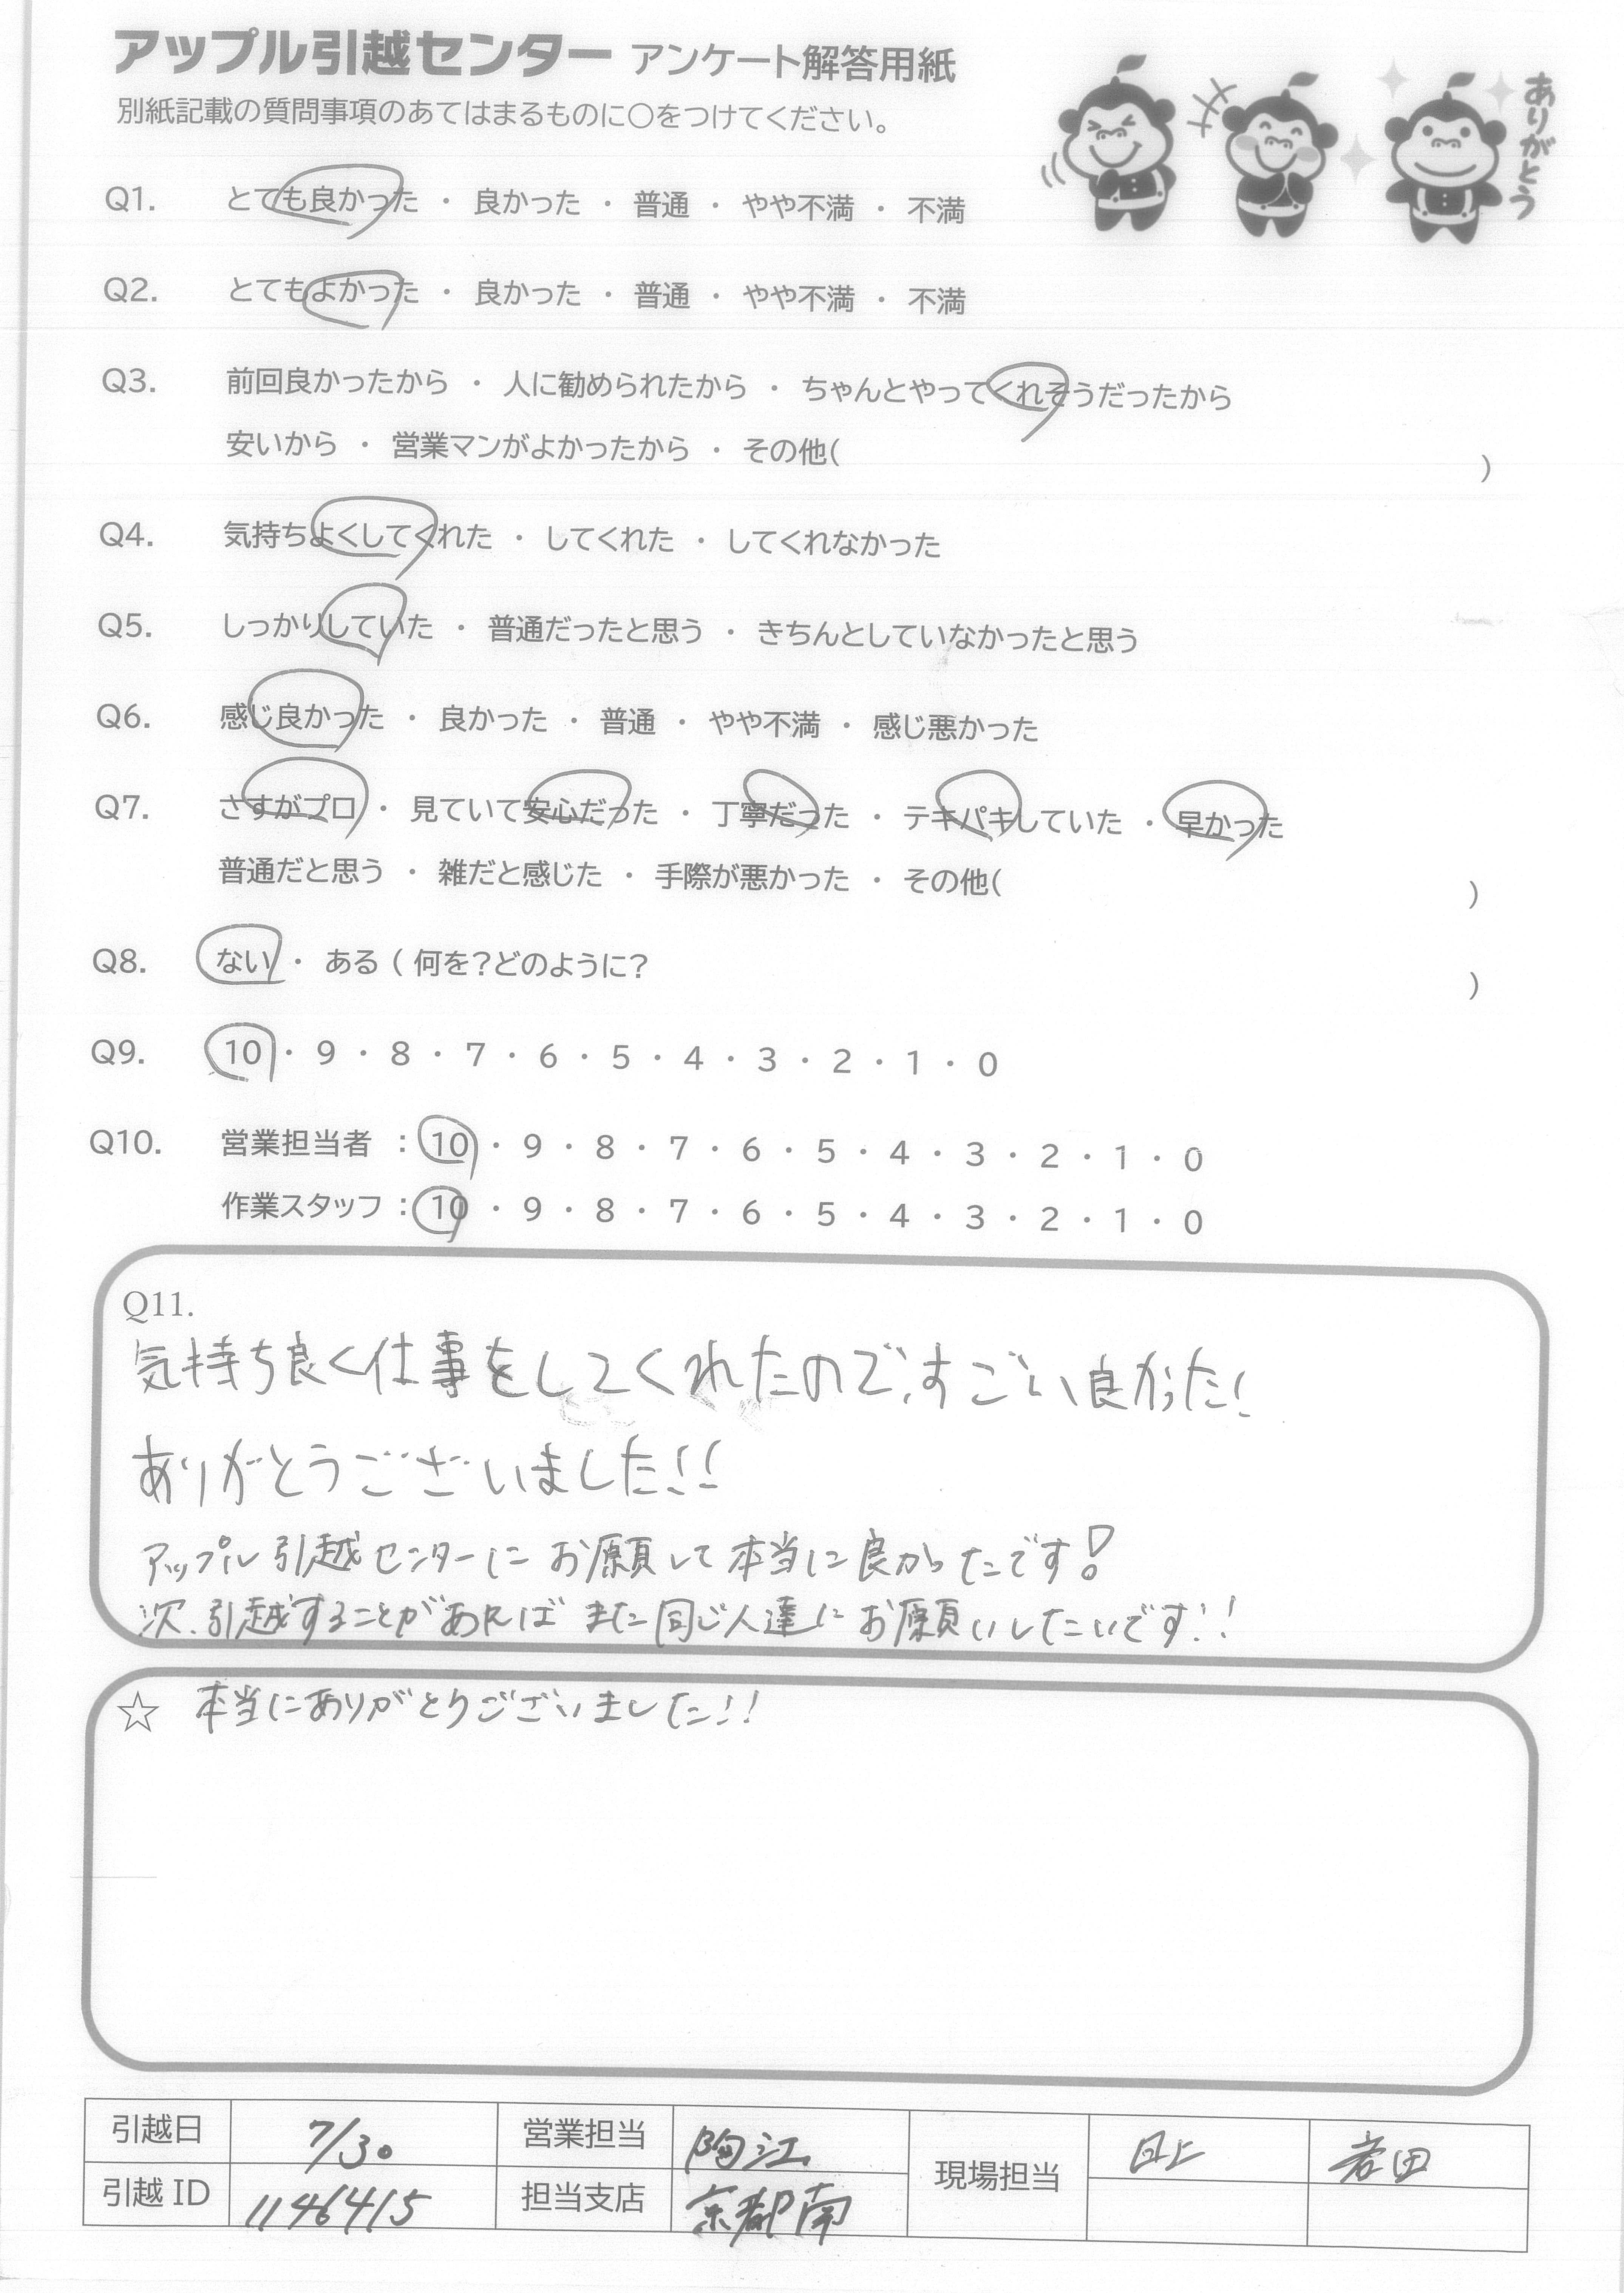 アップル引越センター アンケート解答用紙
別紙記載の質問事項のあてはまるものに○をつけてください。
ありがとう
Q1. とても良かった ・ 良かった ・ 普通 ・ やや不満 ・ 不満
Q2. とてもよかった ・ 良かった ・ 普通 ・ やや不満 ・ 不満
Q3. 前回良かったから ・ 人に勧められたから ・ ちゃんとやってくれそうだったから
安いから ・ 営業マンがよかったから ・ その他( )
Q4. 気持ちよくしてくれた ・ してくれた ・ してくれなかった
Q5. しっかりしていた ・ 普通だったと思う ・ きちんとしていなかったと思う
Q6. 感じ良かった ・ 良かった ・ 普通 ・ やや不満 ・ 感じ悪かった
Q7. さすがプロ ・ 見ていて安心だった ・ 丁寧だった ・ テキパキしていた ・ 早かった
普通だと思う ・ 雑だと感じた ・ 手際が悪かった ・ その他( )
Q8. ない ・ ある ( 何を?どのように? )
Q9. 10 ・ 9 ・ 8 ・ 7 ・ 6 ・ 5 ・ 4 ・ 3 ・ 2 ・ 1 ・ 0
Q10. 営業担当者 : 10 ・ 9 ・ 8 ・ 7 ・ 6 ・ 5 ・ 4 ・ 3 ・ 2 ・ 1 ・ 0
作業スタッフ : 10 ・ 9 ・ 8 ・ 7 ・ 6 ・ 5 ・ 4 ・ 3 ・ 2 ・ 1 ・ 0
Q11.
気持ち良く仕事をしてくれたので、すごい良かった!
ありがとうございました!!
アップル引越センターにお願して本当に良かったです!
次、引越することがあればまた同じ人達にお願いしたいです!!
☆ 本当にありがとうございました!!
引越日 7/30 営業担当 現場担当 岩田
引越ID 1146415 担当支店 京都南